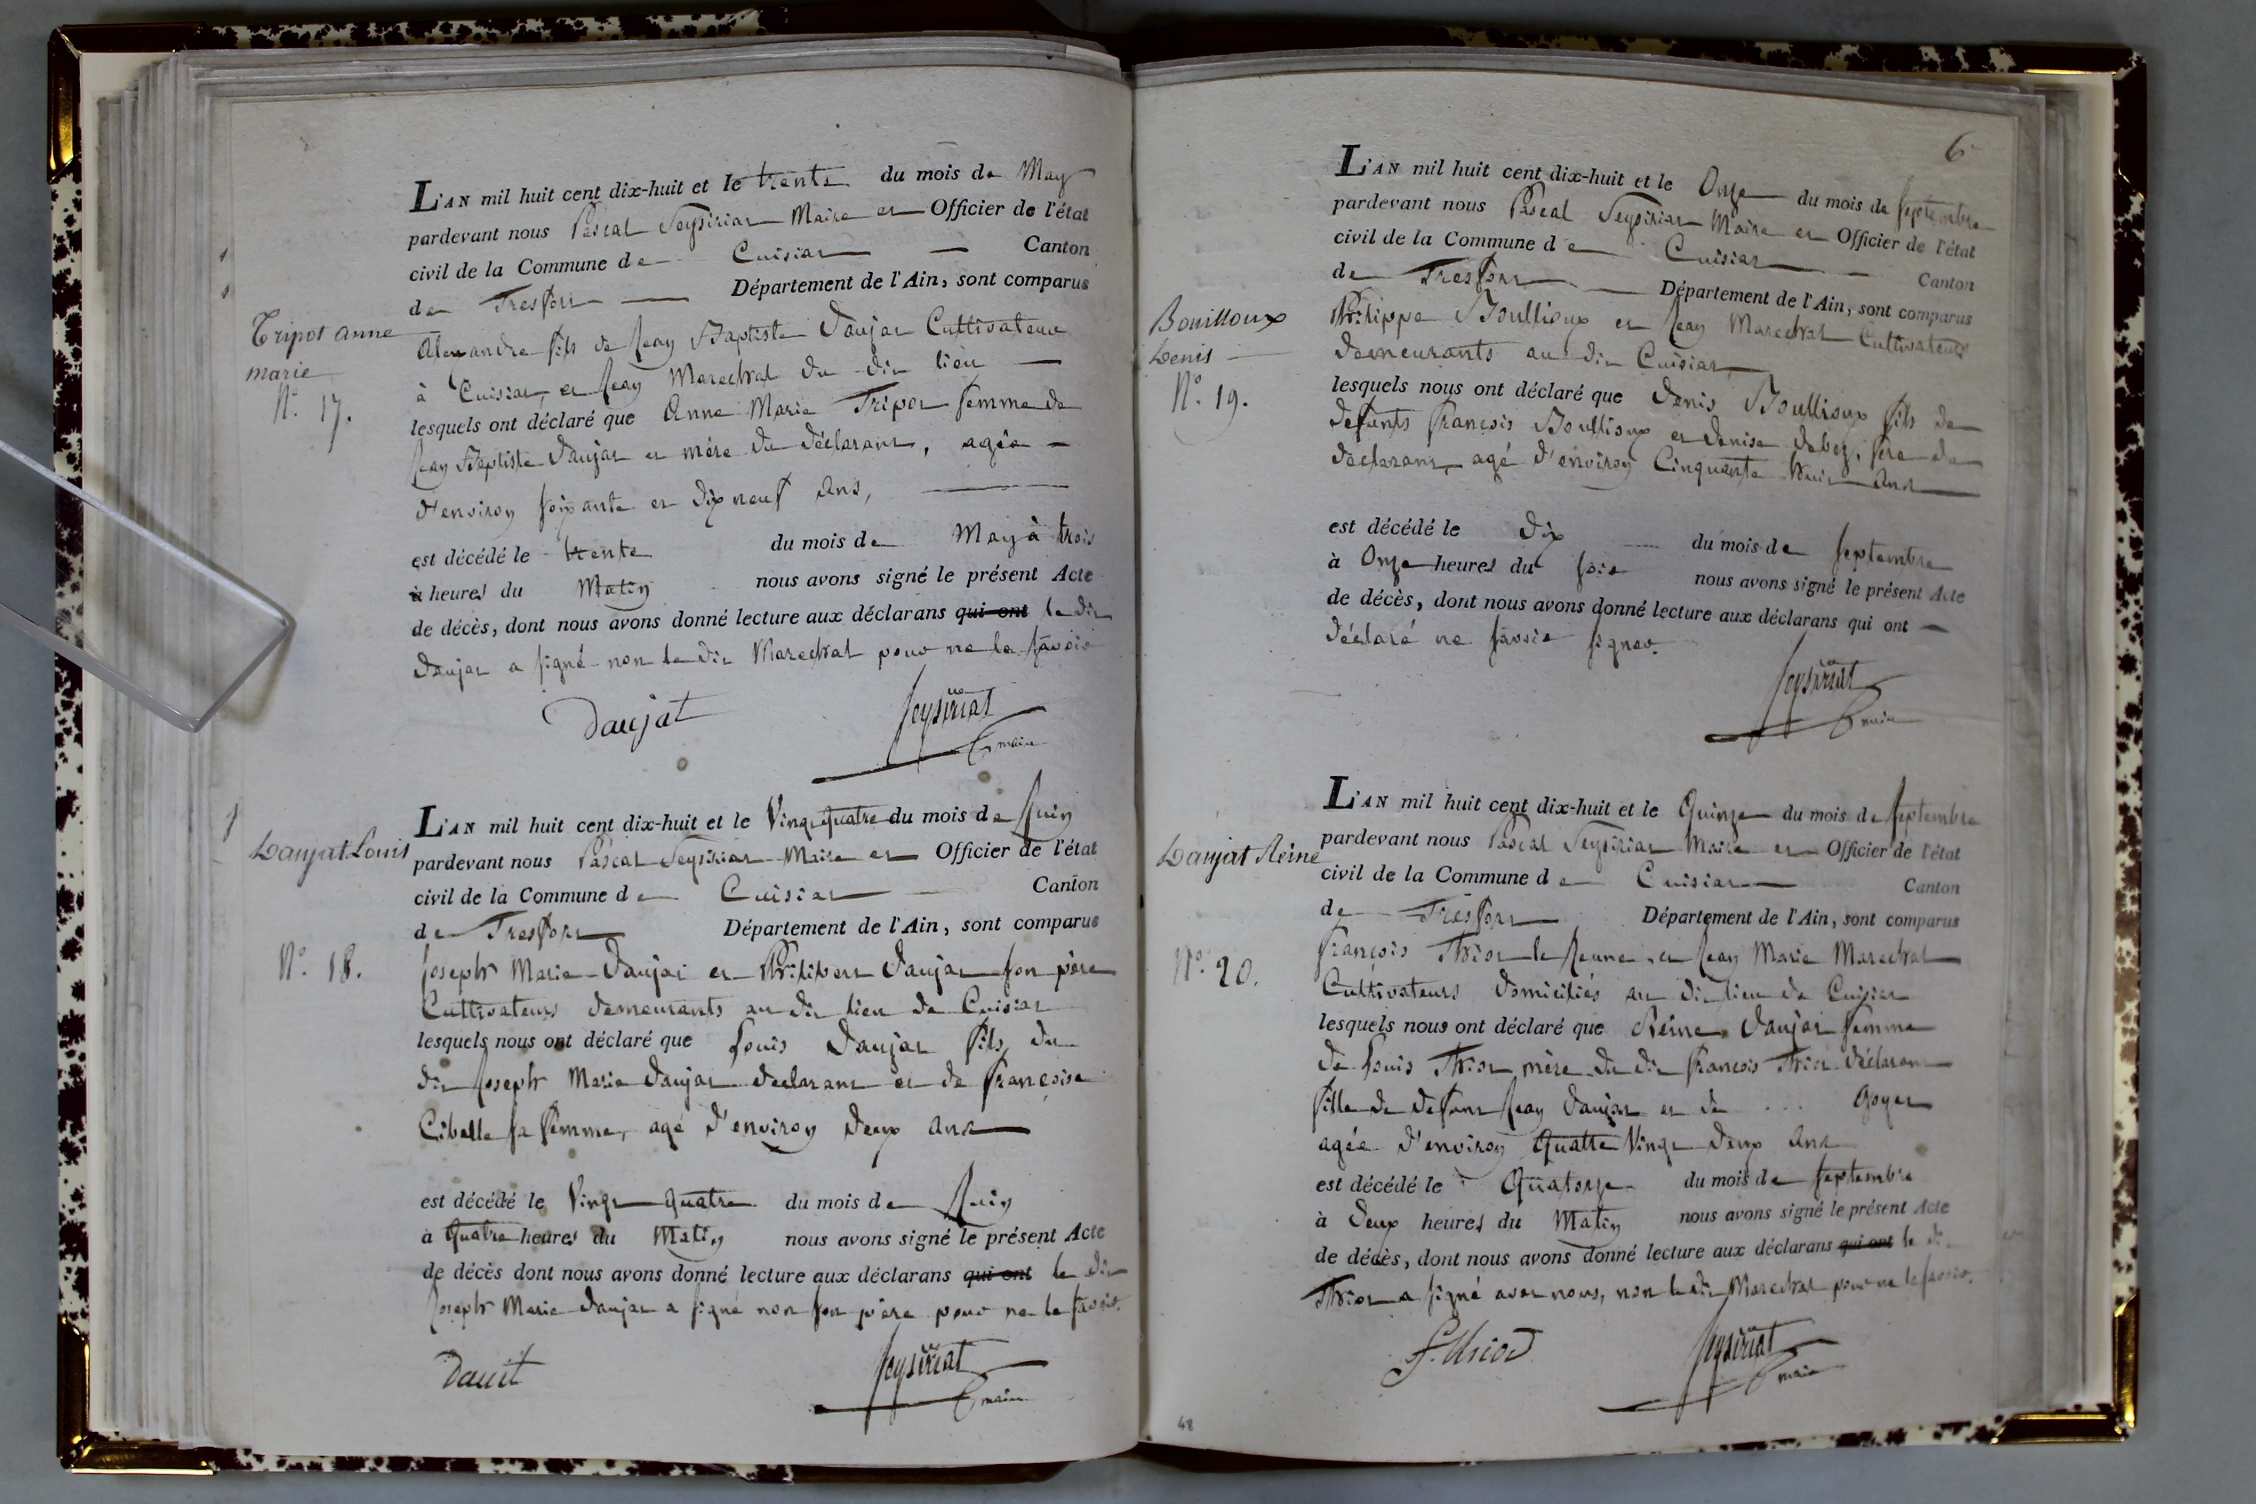 Tripot anne
marie
N.° 17.
L'AN mil huit cent dix-huit et le trente du mois de May
pardevant nous Pascal Seysiriat Maire et Officier de l'état
civil de la Commune de Cuisiat — Canton
de Tresfort — Département de l'Ain, sont comparus
Alexandre fils de Jean Baptiste Daujat Cultivateur
à Cuisiat, et Jean Marechal du dit lieu —
lesquels ont déclaré que Anne Marie Tripot femme de
Jean Baptiste Daujat et mére du déclarant, agée —
d'environ soixante et dix neuf ans, —
est décédé le trente du mois de May à trois
à heures du Matin nous avons signé le présent Acte
de décès, dont nous avons donné lecture aux déclarans qui ont le dit
Daujat a signé non le dit Marechal pour ne le savoir
Daujat Seysiriat
maire
Daujat Louis
N.° 18.
L'AN mil huit cent dix-huit et le Vingt quatre du mois de Juin
pardevant nous Pascal Seysiriat Maire et Officier de l'état
civil de la Commune de Cuisiat — Canton
de Tresfort Département de l'Ain, sont comparus
Joseph Marie Daujat et Philibert Daujat son père
Cultivateurs demeurants au dit lieu de Cuisiat
lesquels nous ont déclaré que Louis Daujat fils du
dit Joseph Marie Daujat declarant et de Françoise
Cibelle sa femme, agé d'environ deux ans
est décédé le Vingt quatre du mois de Juin
à Quatre heures du Matin nous avons signé le présent Acte
de décès dont nous avons donné lecture aux déclarans qui ont le dit
Joseph Marie Daujat a signé non son père pour ne le savoir.
Seysiriat
maire
6
Bouilloux
Denis —
N.° 19.
L'AN mil huit cent dix-huit et le Onze du mois de septembre
pardevant nous Pascal Seysiriat Maire et Officier de l'état
civil de la Commune de Cuisiat — Canton
de Tresfort — Département de l'Ain, sont comparus
Philippe Boullioux et Jean Marechal Cultivateurs
demeurants au dit Cuisiat
lesquels nous ont déclaré que Denis Boullioux fils de
defunts François Boullioux et Denise Debey, père du
declarant, agé d'environ Cinquante huit ans
est décédé le dix — du mois de septembre
à Onze heures du soir nous avons signé le présent Acte
de décès, dont nous avons donné lecture aux déclarans qui ont —
déclaré ne savoir signer.
Seysiriat
maire
Daujat Reine
N.° 20.
L'AN mil huit cent dix-huit et le Quinze du mois de septembre
pardevant nous Pascal Seysiriat Maire et Officier de l'état
civil de la Commune de Cuisiat — Canton
de Tresfort Département de l'Ain, sont comparus
françois Thior le Jeune, et Jean Marie Marechal
Cultivateurs domiciliés au dit lieu de Cuisiat
lesquels nous ont déclaré que Reine Daujat femme
de Louis Thior mère du dit françois Thior déclarant
fille de defunt Jean Daujat et de ... Goyet
agée d'environ Quatre Vingt deux ans
est décédé le Quatorze du mois de septembre
à deux heures du Matin nous avons signé le présent Acte
de décès, dont nous avons donné lecture aux déclarans qui ont le dit
Thior a signé avec nous, non le dit Marechal pour ne le savoir.
Seysiriat
maire
48